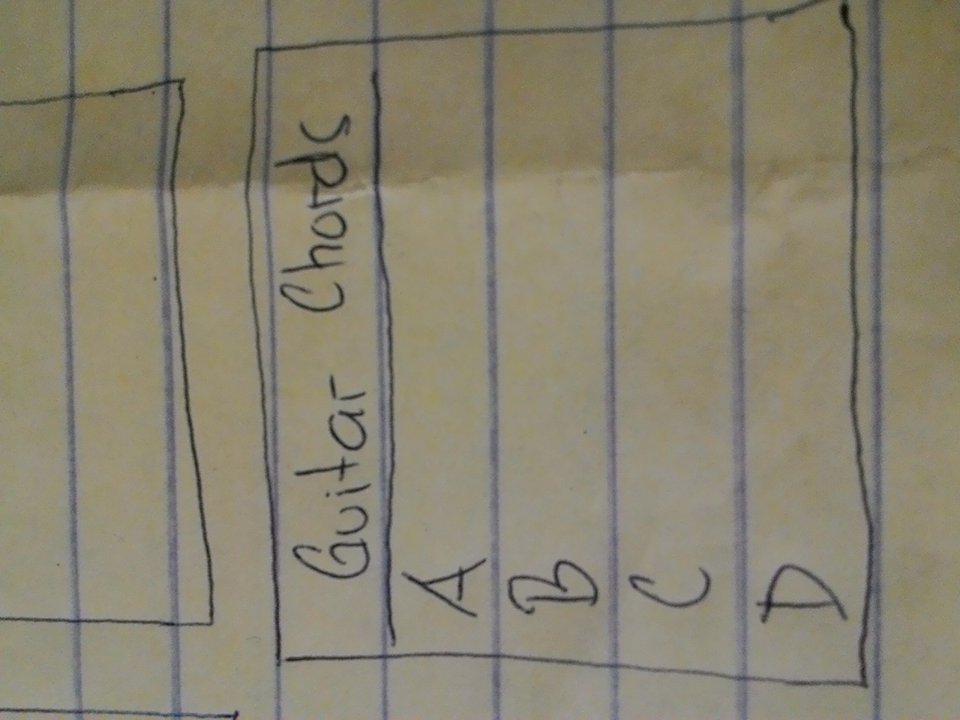 Guitar Chords
A
B
C
D